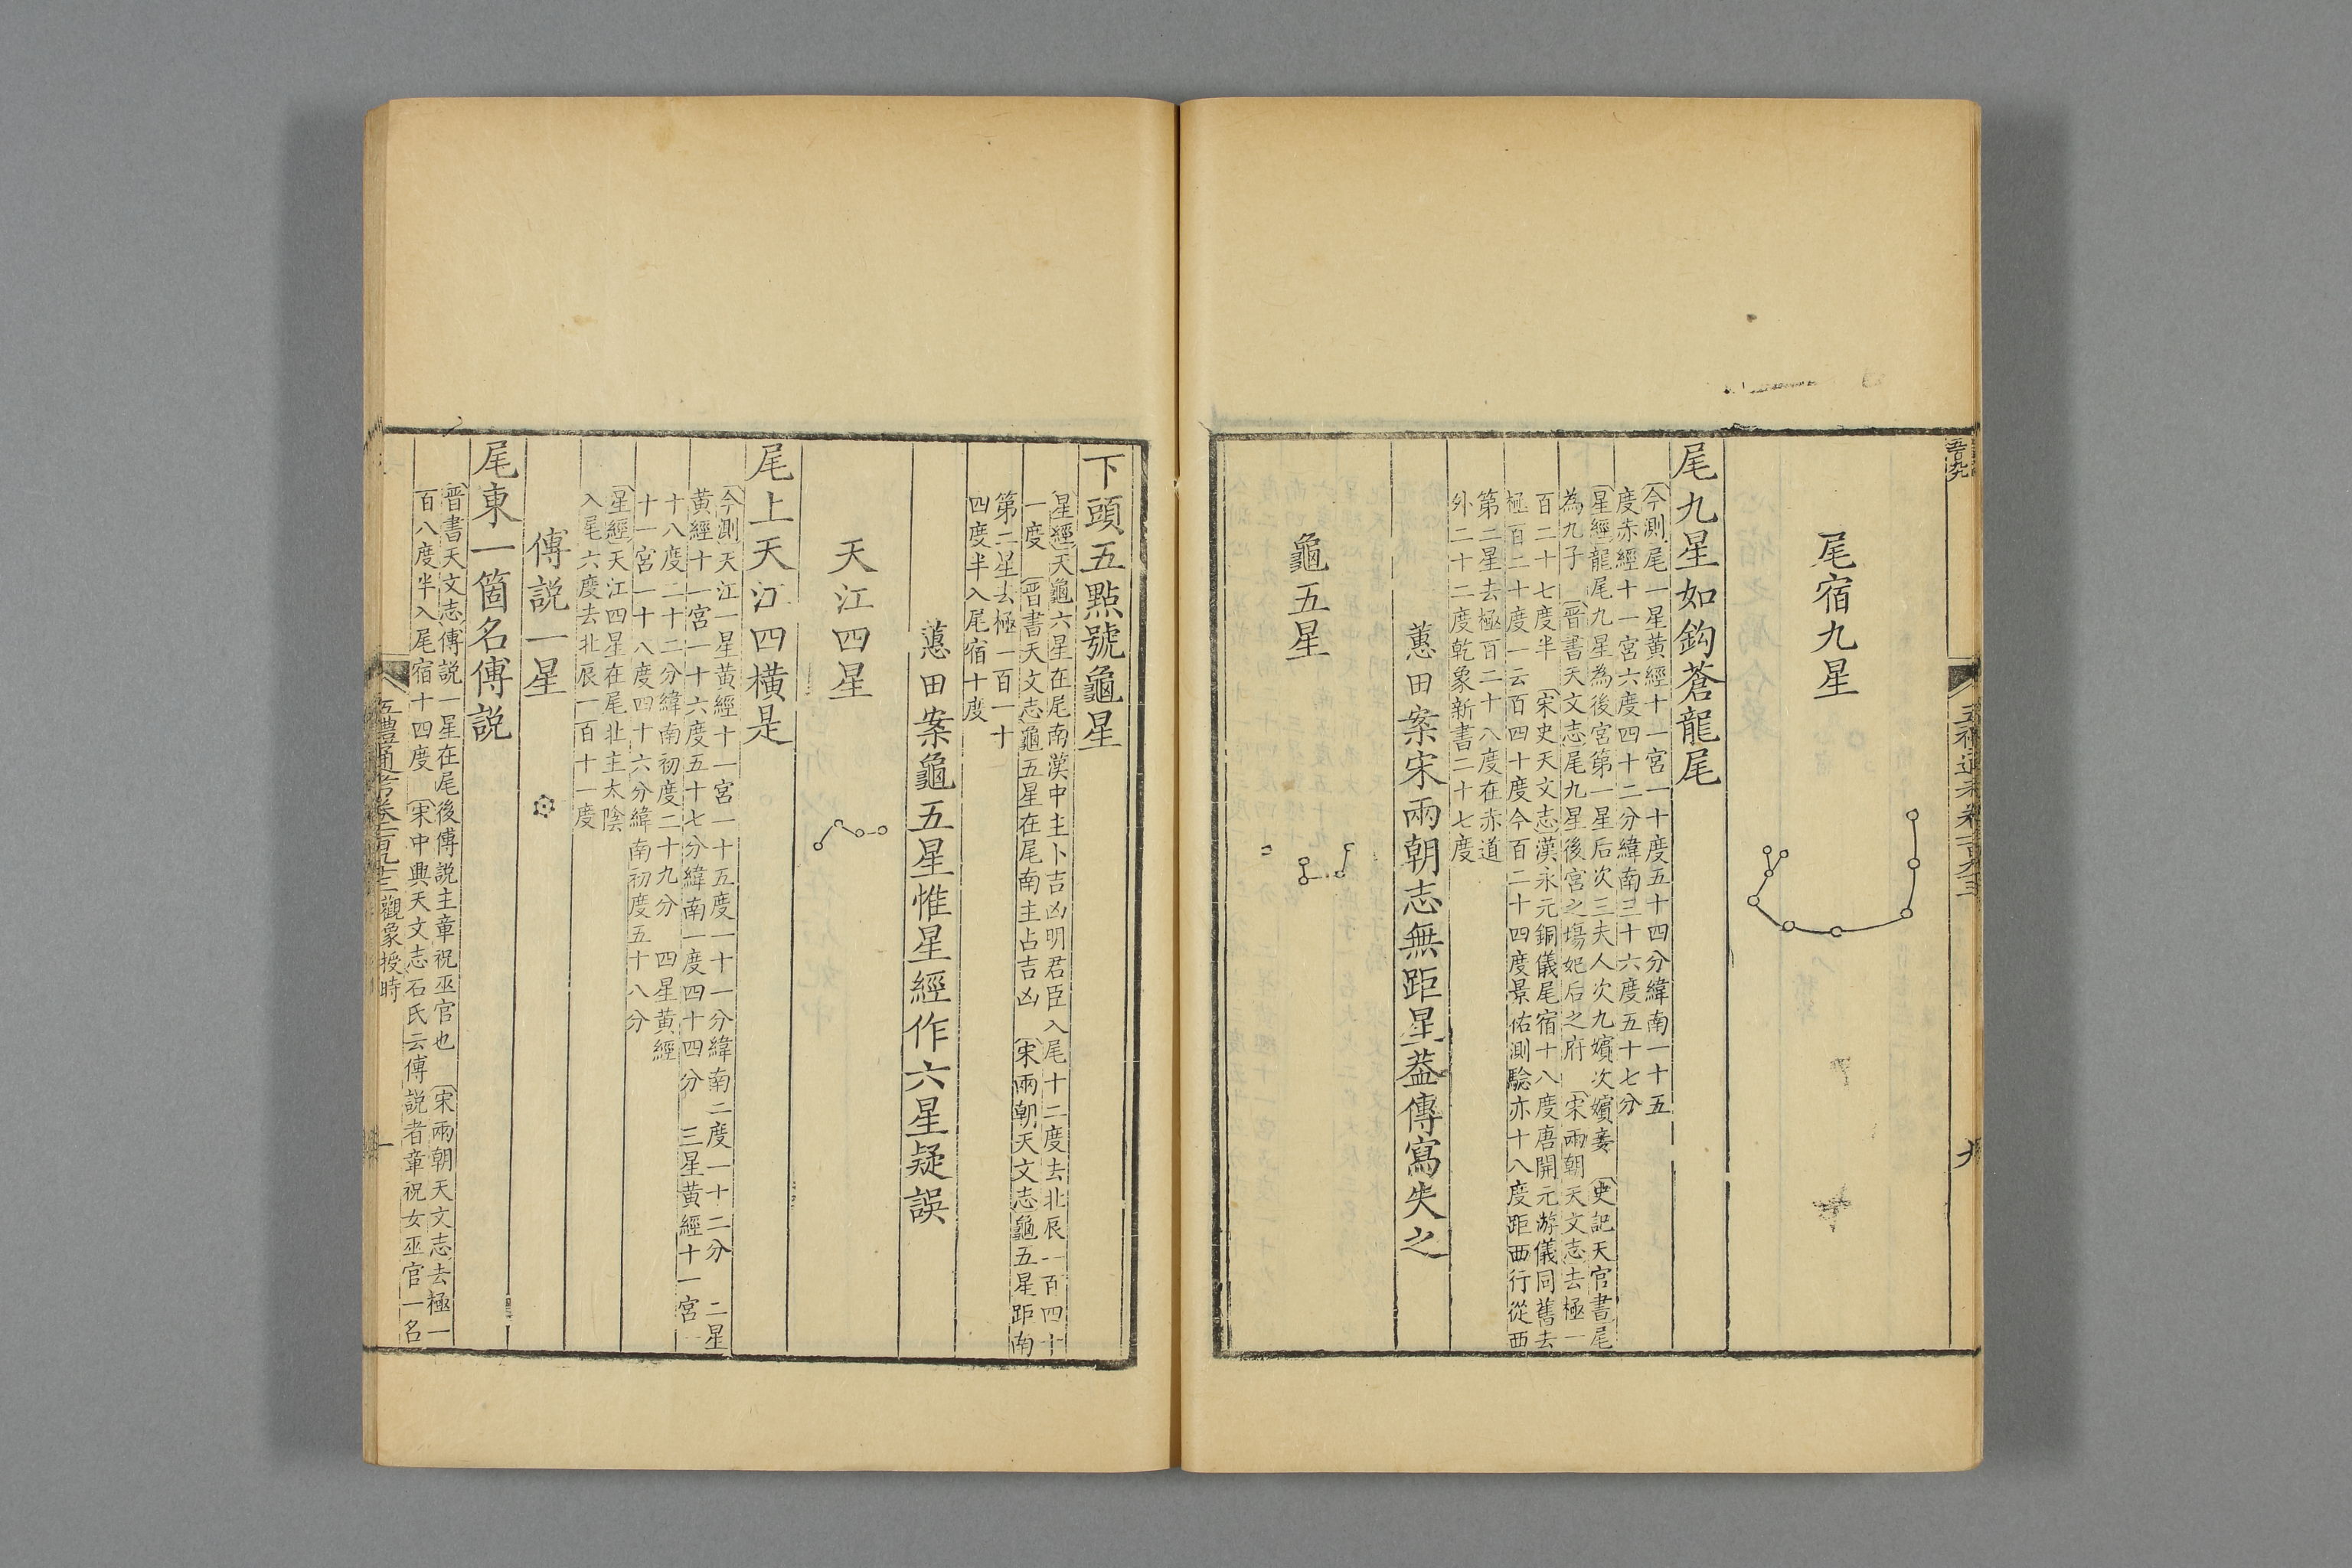 尾宿九星
尾九星如鈎蒼龍尾
今測尾一星黃經十一宮一十度五十四分緯南一十五
度赤經十一宮六度四十二分緯南三十六度五十七分
星經龍尾九星為後宮第一星后次三夫人次九嬪次嬪妾 史記天官書尾
為九子 晉書天文志尾九星後宮之塲妃后之府 宋兩朝天文志去極一
百二十七度半 宋史天文志漢永元銅儀尾宿十八度唐開元游儀同舊去
極百二十度一云百四十度今百二十四度景佑測驗亦十八度距西行從西
第二星去極百二十八度在赤道
外二十二度乾象新書二十七度
蕙田案宋兩朝志無距星葢傳寫失之
龜五星
九
下頭五點號龜星
星經天龜六星在尾南漢中主卜吉凶明君臣入尾十二度去北辰一百四十
一度 晉書天文志龜五星在尾南主占吉凶 宋兩朝天文志龜五星距南
第二星去極一百一十
四度半入尾宿十度
蕙田案龜五星惟星經作六星疑誤
天江四星
尾上天江四橫是
今測天江一星黃經十一宮一十五度一十一分緯南二度一十二分 二星
黃經十一宮一十六度五十七分緯南一度四十四分 三星黃經十一宮一
十八度二十二分緯南初度二十九分 四星黃經
十一宮一十八度四十六分緯南初度五十八分
星經天江四星在尾北主太陰
入尾六度去北辰一百十一度
傅說一星
尾東一箇名傅說
晉書天文志傅說一星在尾後傅說主章祝巫官也 宋兩朝天文志去極一
百八度半入尾宿十四度 宋中興天文志石氏云傅說者章祝女巫官一名
五禮通考卷一百九十三 觀象授時